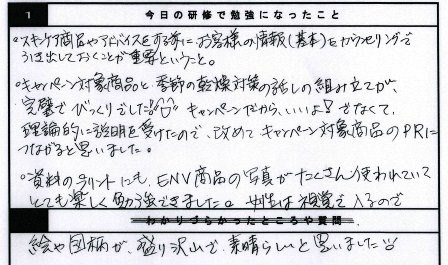 1 今日の研修で勉強になったこと
・スキンケア商品やアドバイスをする前に お客様の情報(基本)をカウンセリングで
引き出しておくことが重要ということ。
・キャンペーン対象商品と季節の乾燥対策の話しの組み立てが、
完璧でびっくりでした!! キャンペーンだから、いいよ! でなくて、
理論的に説明を受けたので、改めてキャンペーン対象商品のPRに
つながると思いました。
・資料のプリントにも、ENV商品の写真がたくさん使われていて
とても楽しく勉強できました。女性は視覚で入るので
わかりづらかったところや質問
絵や図柄が、盛り沢山で、素晴らしいと思いました